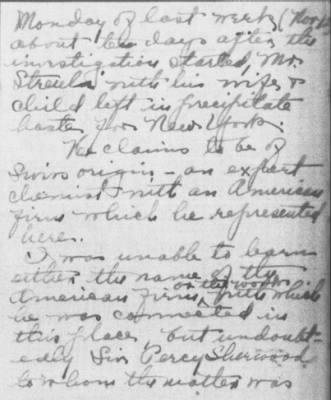 Monday of last week, (Nov
about ten days after the
investigation started, Mr.
Streuli with his wife &
child left in precipitate
haste for New York.
He claims to be of
Swiss origin - an expert
chemist with an American
firm which he represented
here.
I was unable to learn
either the name of the
American firm or the work with which
he was connected in
this place, but undoubt-
edly Sir Percy Sherwood
to whom the matter was